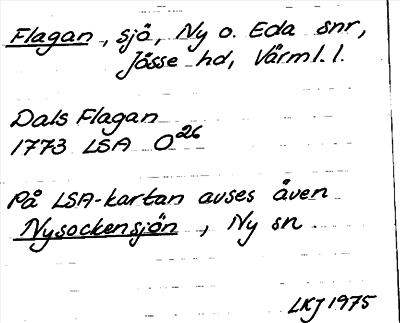 Flagan, sjö, Ny o. Eda snr,
Jösse hd, Värml. l.
Dals Flagan
1773 LSA O26
På LSA-kartan avses även
Nysockensjön, Ny sn.
LKJ 1975